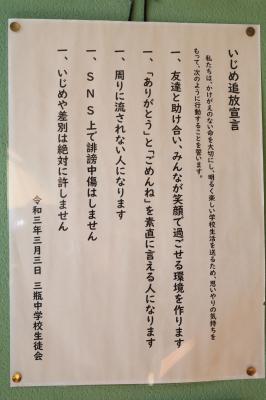 いじめ追放宣言
私たちは、かけがえのない命を大切にし、明るく楽しい学校生活を送るため、思いやりの気持ちを
もって、次のように行動することを誓います。
一、友達と助け合い、みんなが笑顔で過ごせる環境を作ります
一、「ありがとう」と「ごめんね」を素直に言える人になります
一、周りに流されない人になります
一、ＳＮＳ上で誹謗中傷はしません
一、いじめや差別は絶対に許しません
令和三年三月三日　三瓶中学校生徒会